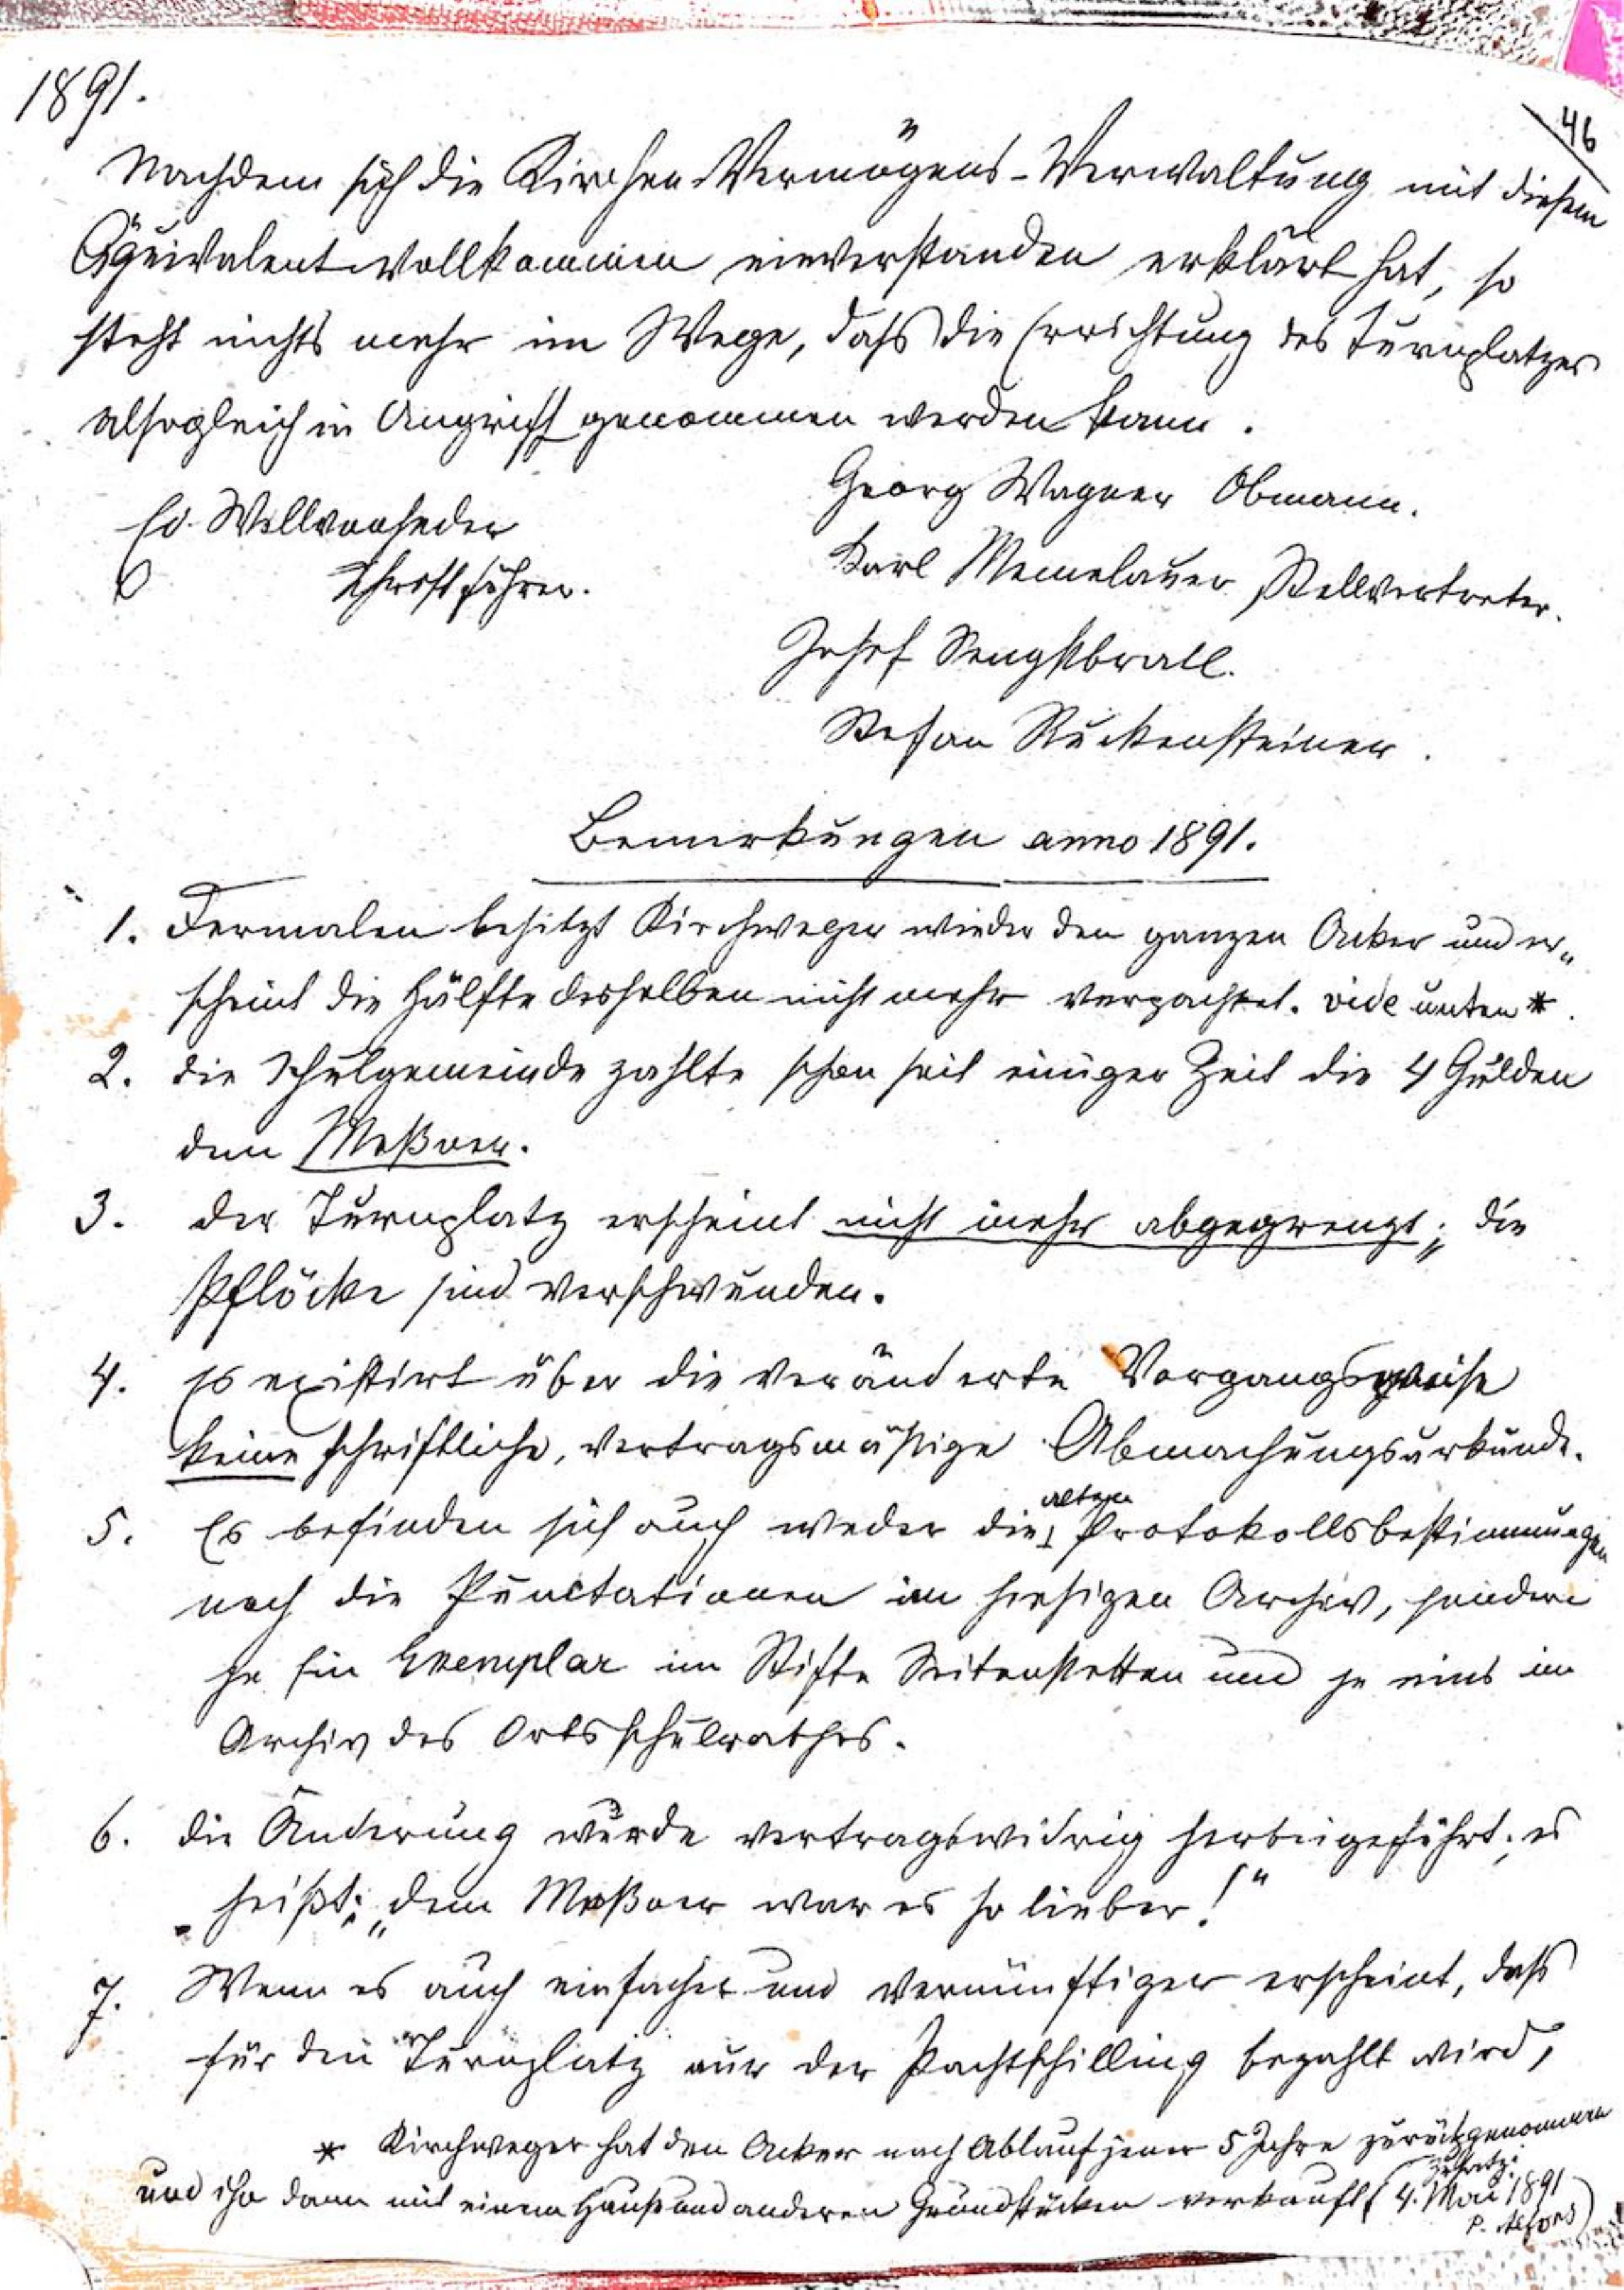 1891.
46
Nachdem sich die Kirchen-Vermögens-Verwaltung mit diesem
Äquivalent vollkommen einverstanden erklärt hat, so
steht nichts mehr im Wege, dass die Errichtung des Turnplatzes
alsogleich in Angriff genommen werden kann.
Georg Wagner Obmann.
Ed.
Schriftführer.
Karl Memelauer Stellvertreter.
Josef Sengstbratl.
Stefan Ruckensteiner.
Bemerkungen anno 1891.
1. Dermalen besitzt Kirchweger wieder den ganzen Acker und er„
scheint die Hälfte desselben nicht mehr verpachtet. vide unten *.
2. die Schulgemeinde zahlte schon seit einiger Zeit die 4 Gulden
dem Meßner.
3. der Turnplatz erscheint nicht mehr abgegrenzt; die
Pflöcke sind verschwunden.
4. Es existirt über die veränderte Vorgangsweise
keine schriftliche, vertragsmäßige Abmachungsurkunde.
5. Es befinden sich auch weder die alten Protokollsbestimmungen
noch die Punctationen im hiesigen Archiv, sondern
je ein Exemplar im Stifte Seitenstetten und je eins im
Archiv des Ortsschulrathes.
6. die Änderung wurde vertragswidrig herbeigeführt; es
heißt: „dem Meßner war es so lieber!“
7. Wenn es auch einfacher und vernünftiger erscheint, dass
für den Turnplatz nur der Pachtschilling bezahlt wird,
* Kirchweger hat den Acker nach Ablauf jener 5 Jahre zurückgenommen
und ihn dann mit einem Hause und anderen Grundstücken verkauft (Zusatz: 4. Mai 1891
P. Alfons)